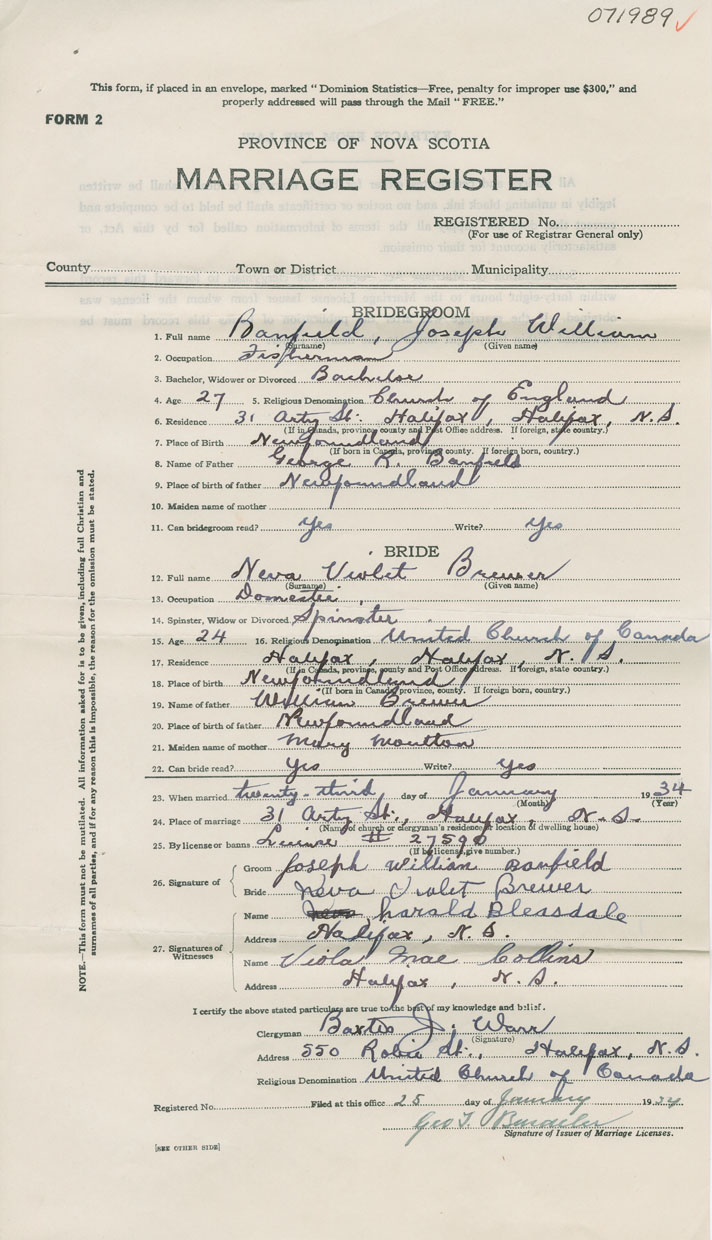 071989 ✓
This form, if placed in an envelope, marked "Dominion Statistics—Free, penalty for improper use $300," and
properly addressed will pass through the Mail "FREE."
FORM 2
PROVINCE OF NOVA SCOTIA
MARRIAGE REGISTER
REGISTERED No.
(For use of Registrar General only)
County Town or District Municipality
BRIDEGROOM
1. Full name Banfield, Joseph William
(Surname) (Given name)
2. Occupation Fisherman
3. Bachelor, Widower or Divorced Bachelor
4. Age 27 5. Religious Denomination Church of England
6. Residence 31 Arty St. Halifax, Halifax, N.S.
(If in Canada, province, county and Post Office address. If foreign, state country.)
7. Place of Birth Newfoundland
(If born in Canada, province, county. If foreign born, country.)
8. Name of Father George R. Banfield
9. Place of birth of father Newfoundland
10. Maiden name of mother
11. Can bridegroom read? Yes Write? Yes
BRIDE
12. Full name Neva Violet Brewer
(Surname) (Given name)
13. Occupation Domestic
14. Spinster, Widow or Divorced Spinster
15. Age 24 16. Religious Denomination United Church of Canada
17. Residence Halifax, Halifax, N.S.
(If in Canada, province, county and Post Office address. If foreign, state country.)
18. Place of birth Newfoundland
(If born in Canada, province, county. If foreign born, country.)
19. Name of father William Brewer
20. Place of birth of father Newfoundland
21. Maiden name of mother Mary Moulton
22. Can bride read? Yes Write? Yes
23. When married twenty-third day of January 1934
(Month) (Year)
24. Place of marriage 31 Arty St., Halifax, N.S.
(Name of church or clergyman's residence, or location of dwelling house)
25. By license or banns License # 27590
(If by license, give number.)
26. Signature of
Groom Joseph William Banfield
Bride Neva Violet Brewer
27. Signatures of Witnesses
Name harold Bleasdale
Address Halifax, N.S.
Name Viola Mae Collins
Address Halifax, N.S.
I certify the above stated particulars are true to the best of my knowledge and belief.
Clergyman Baxter J. Warr
(Signature)
Address 550 Robie St., Halifax, N.S.
Religious Denomination United Church of Canada
Registered No. Filed at this office 25 day of January 1934
Geo T.
Signature of Issuer of Marriage Licenses.
[SEE OTHER SIDE]
NOTE.—This form must not be mutilated. All information asked for is to be given, including full Christian and
surnames of all parties, and if for any reason this is impossible, the reason for the omission must be stated.